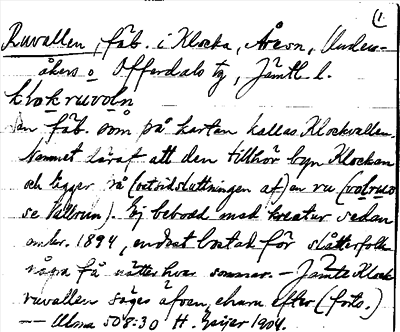 1.
Ruvallen, fäb. i Klocka, Åresn, Unders-
åkers o Offerdals tg, Jämtl. l.
klokruvoln
En fäb. som på kartan kallas Klockvallen.
Namnet däraf att den tillhör byn Klockan
och ligger på en ru
se Vallrun). Ej bebodd med kreatur sedan
omkr. 1894, endast bostad för slåtterfolk
några få nätter hvar sommar. – Jämte Klock
ruvallen säges äfven, ehuru efter (forts.)
— Alma 508:30 H. Geijer 1904.